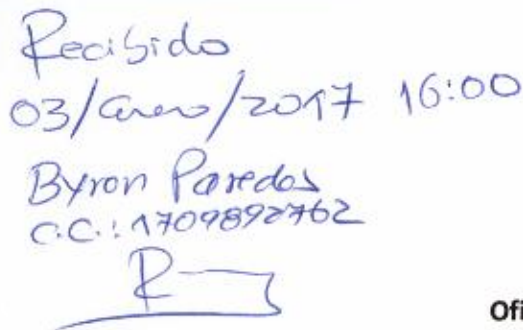 Recibido
03/enero/2017 16:00
Byron Paredes
C.C.: 1709892762
Ofi